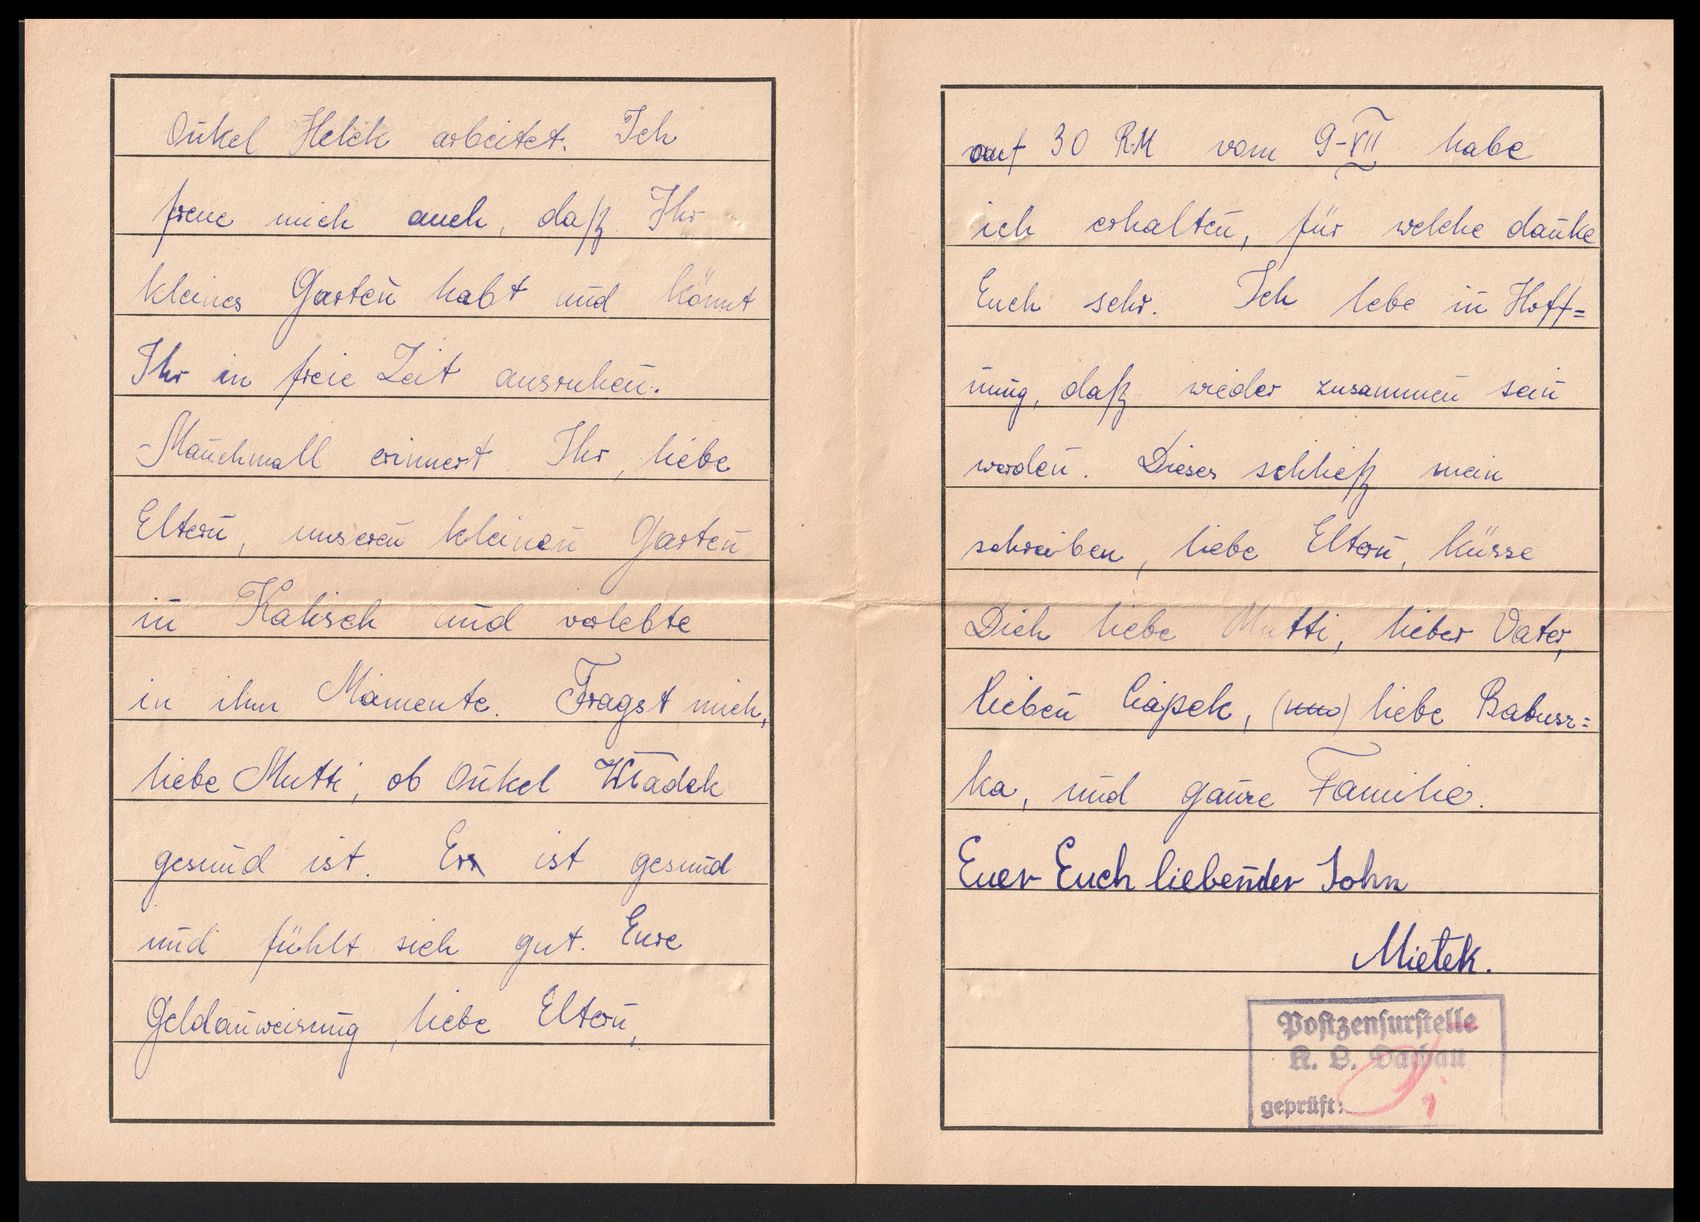 Onkel Helek arbeitet. Ich
freue mich auch, daß Ihr
kleines Garten habt und könnt
Ihr in freie Zeit ausruhen.
Manchmall erinnert Ihr, liebe
Eltern, unseren kleinen Garten
in Kalisch und verlebte
in ihm Mamente. Fragst mich,
liebe Mutti, ob Onkel Władek
gesund ist. Er ist gesund
und fühlt sich gut. Eure
Geldanweisung, liebe Eltern,
auf 30 RM vom 9-VII habe
ich erhalten, für welche danke
Euch sehr. Ich lebe in Hoff=
nung, daß wieder zusammen sein
werden. Dieses schließ mein
schreiben, liebe Eltern, küsse
Dich liebe Mutti, lieber Vater,
lieben Ciapek, (und) liebe Babusz=
ka, und ganze Familie.
Euer Euch liebender Sohn
Mietek.
Postzensurstelle
K. L. Dachau
geprüft: